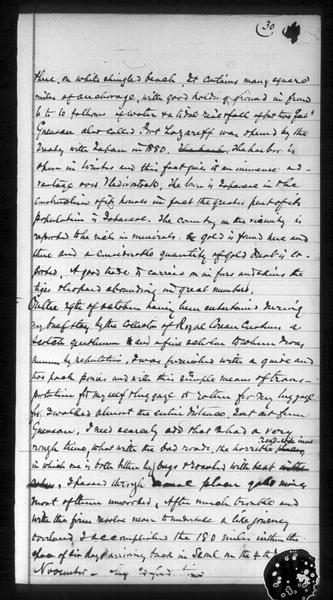 30
there, on white shingled beach. It contains many square
miles of anchorage, with good holding ground in from
6 to 10 fathoms of water & a tidal rise & fall of but two feet.
Gensan also called Port Lazareff was opened by the
treaty with Japan in 1880. The harbor is
open in Winter and this fact gives it an immense ad-
vantage over Vladivostock. The town is Japanese in the
construction of its houses in fact the greater part of its
population is Japanese. The country in the vicinity is
reported to be rich in minerals. gold is found here and
there and a considerable quantity of gold dust is ex-
ported. A good trade is carried on in furs and skins the
tiger & leopard abounding in great numbers.
On the 29th of October having been entertained during
my brief stay by the collector of Royal Corean Customs a
gentleman and a fine scholar to whom I was
known by reputation, I was furnished with a guide and
two pack ponies and with this simple means of trans-
portation for myself & luggage or rather for my luggage
for I walked almost the entire distance, I set out from
Gensan. I need scarcely add that I had a very
rough time, what with the bad roads, the horrible
road-side inns
in which one is both bitten by bugs & roasted with heat
I passed through gold mines
most of them unworked. After much trouble and
with the firm resolve never to undertake a like journey
overland, I accomplished the 180 miles within the
space of six days arriving back in Seoul on the 4th
November